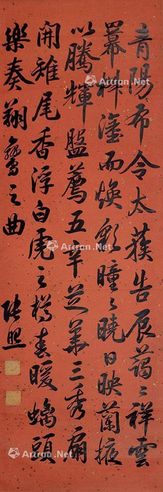 青陽布令太蔟告辰藹〻祥雲
冪神瀛而煥彩曈〻曉日映蘭掖
以騰輝盤薦五辛芝華三秀扇
開雉尾香浮白虎之樽春暖螭頭
樂奏翔鸞之曲 張照
Artron.Net